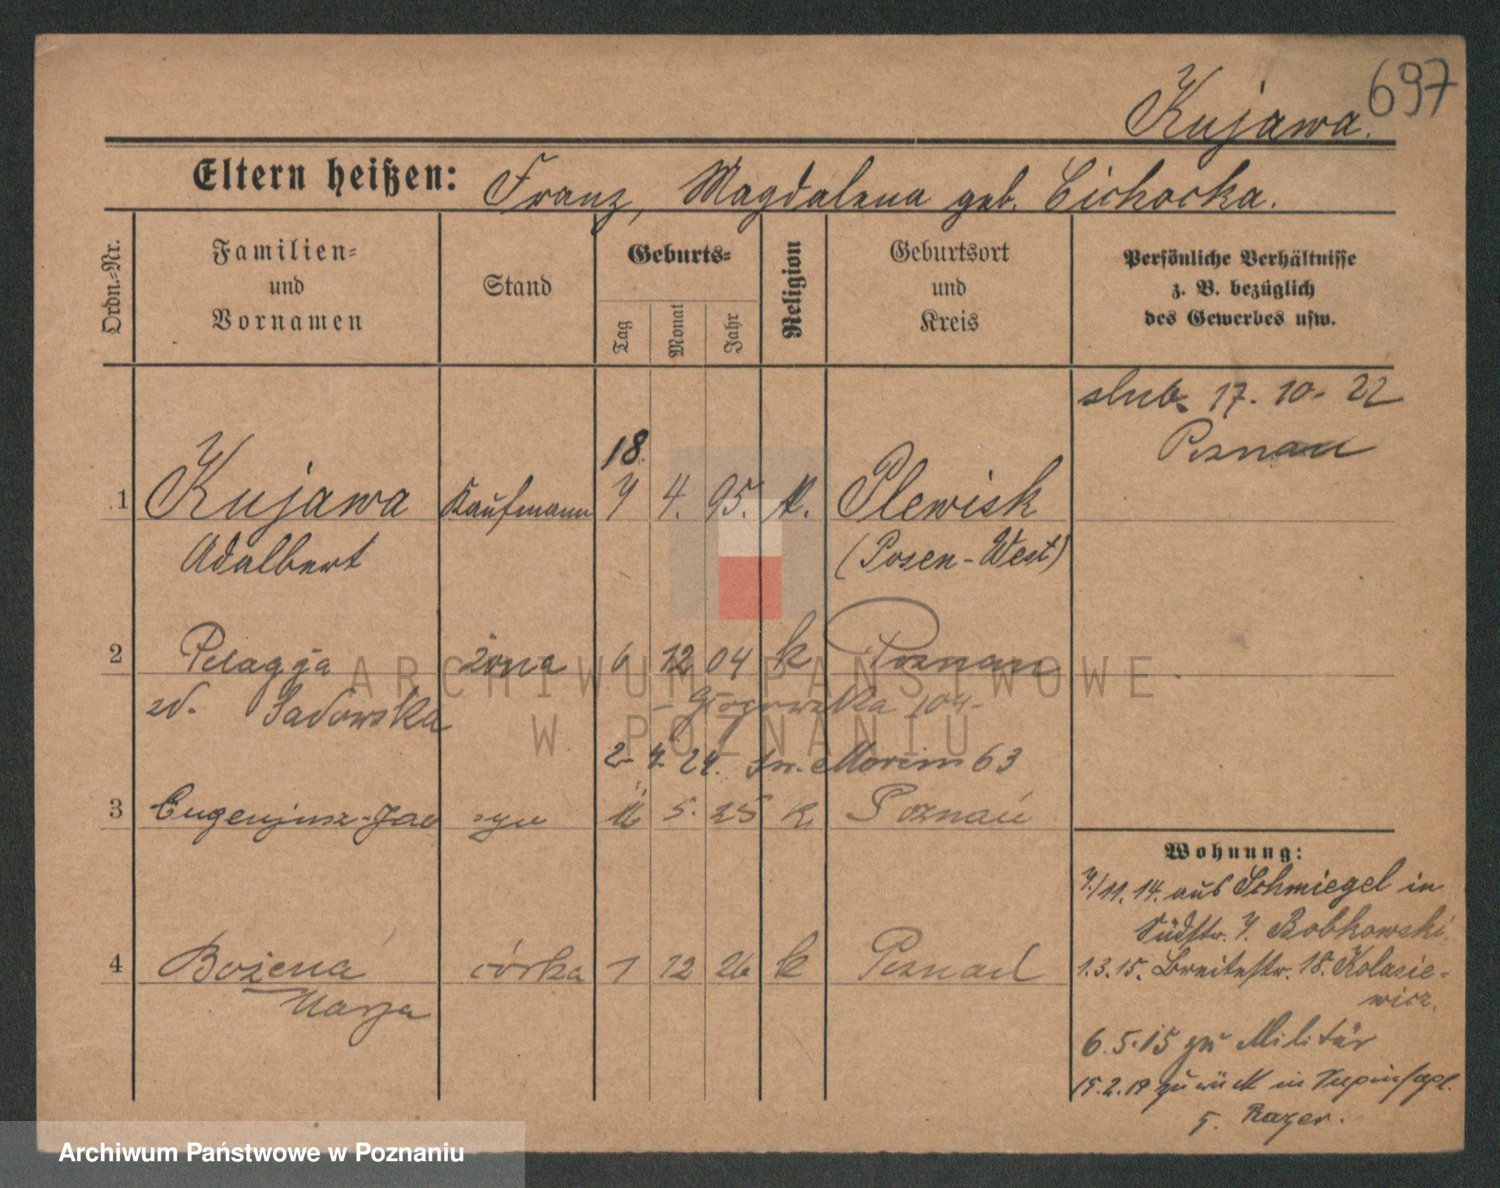 697
Kujawa.
Eltern heißen: Franz, Magdalena geb. Cichocka.
Ordn.-Nr.
Familien-
und
Vornamen
Stand
Geburts-
Tag
Monat
Jahr
Religion
Geburtsort
und
Kreis
Persönliche Verhältnisse
z. B. bezüglich
des Gewerbes usw.
ślub 17. 10. 22
Poznań
18.
1 Kujawa Kaufmann 7 4. 95. k. Plewisk
Adalbert (Posen-West)
2 Pelagja żona 6 12 04 k Poznań
zd. Sadowska
- Głogowska 104-
2. 4. 24. św. Marcin 63
3 Eugenjusz-Jan syn 5. 25 k Poznań
4 Bożena córka 1 12 26 k Poznań
Marja
Wohnung:
7./11. 14. aus Schmiegel in
Südstr. 7. Bobkowski.
1.3.15. Breitestr. 18. Kolasie-
wicz.
6.5.15 zu Militär
15.2.19 zurück in
5.
ARCHIWUM PAŃSTWOWE
W POZNANIU
Archiwum Państwowe w Poznaniu